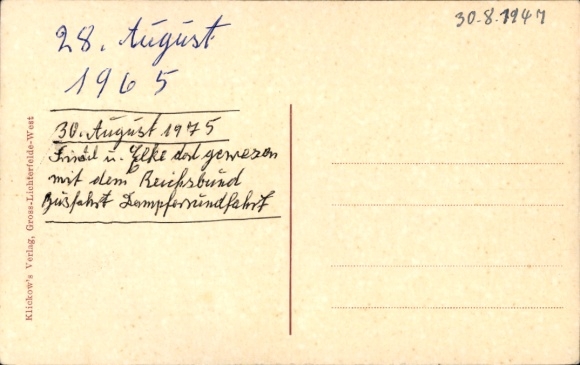 30.8.1947
28. August
1965
30. August 1975
Friedel u. Elke dort gewesen
mit dem Reichsbund
Busfahrt Dampferrundfahrt
Klickow's Verlag, Gross-Lichterfelde-West